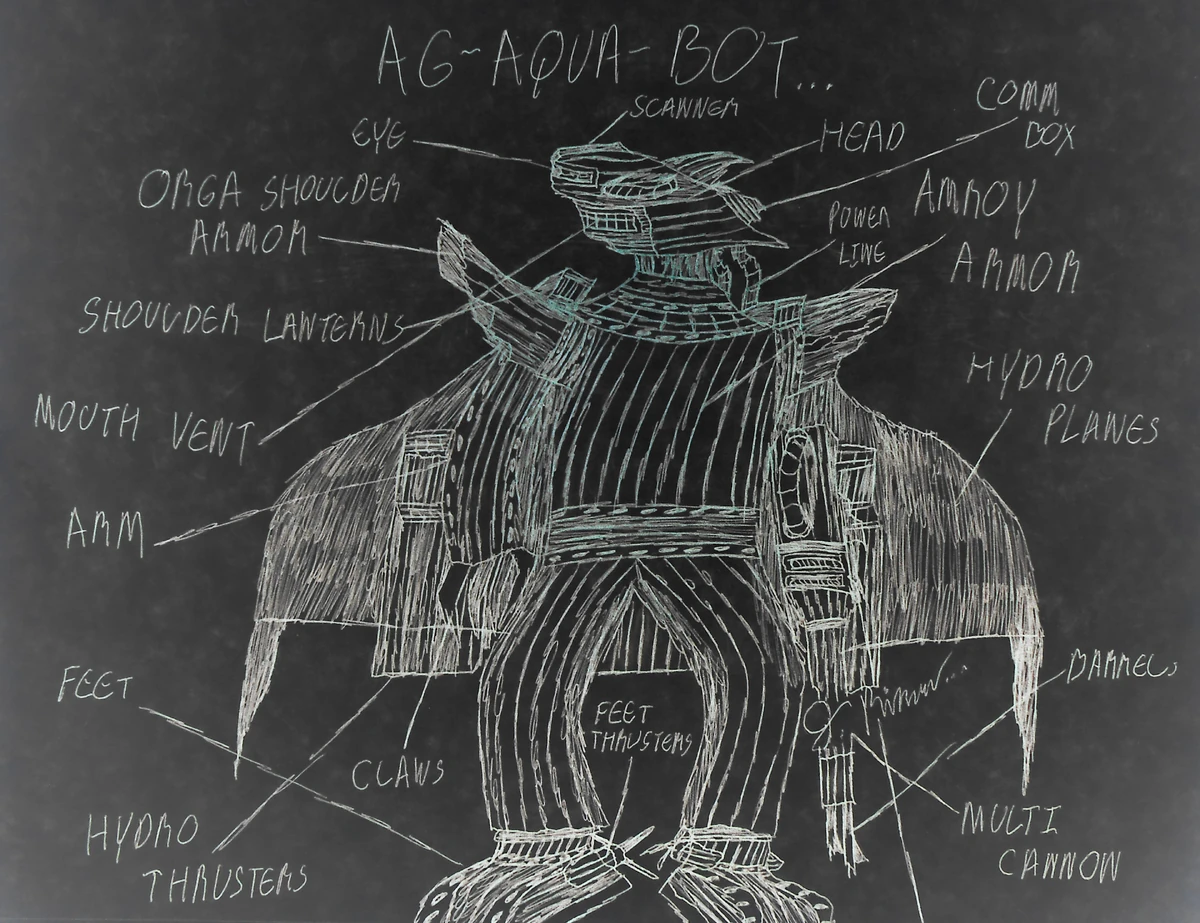 AG~AQUA-BOT...
SCANNER
COMM
BOX
EYE
HEAD
ORGA SHOULDER
ARMOR
POWER
LINE
ARMOR
SHOULDER LANTERNS
HYDRO
PLANES
MOUTH VENT
ARM
BARRELS
FEET
FEET
THRUSTERS
CLAWS
HYDRO
THRUSTERS
MULTI
CANNON